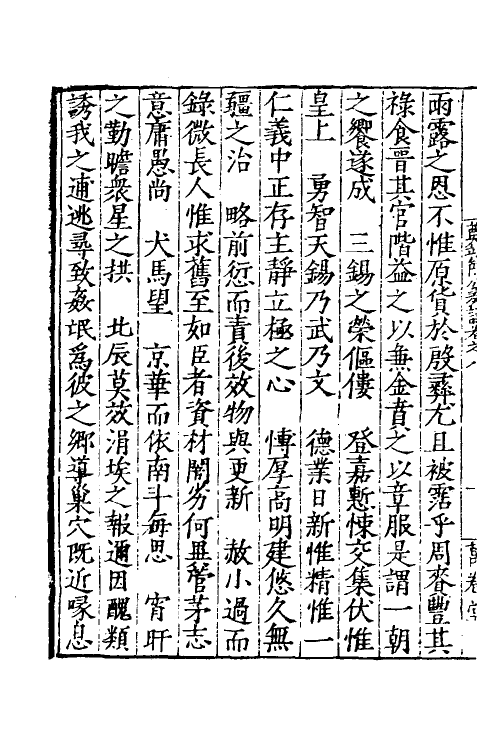 雨露之恩不惟原貸於殷彝尤且被霑乎周賚豐其
祿食晉其官階益之以兼金賁之以章服是謂一朝
之饗遂成　三錫之榮傴僂　登嘉慙悚交集伏惟
皇上　勇智天錫乃武乃文　德業日新惟精惟一
仁義中正存主靜立極之心　慱厚高明建悠久無
疆之治　略前愆而責後效物與更新　赦小過而
錄微長人惟求舊至如臣者資材闇劣何無管茅志
意庸愚尚　犬馬望　京華而依南斗每思　宵旰
之勤瞻衆星之拱　北辰莫效涓埃之報邇因醜類
誘我之逋逃尋致姦氓爲彼之鄉導巢穴旣近喙息